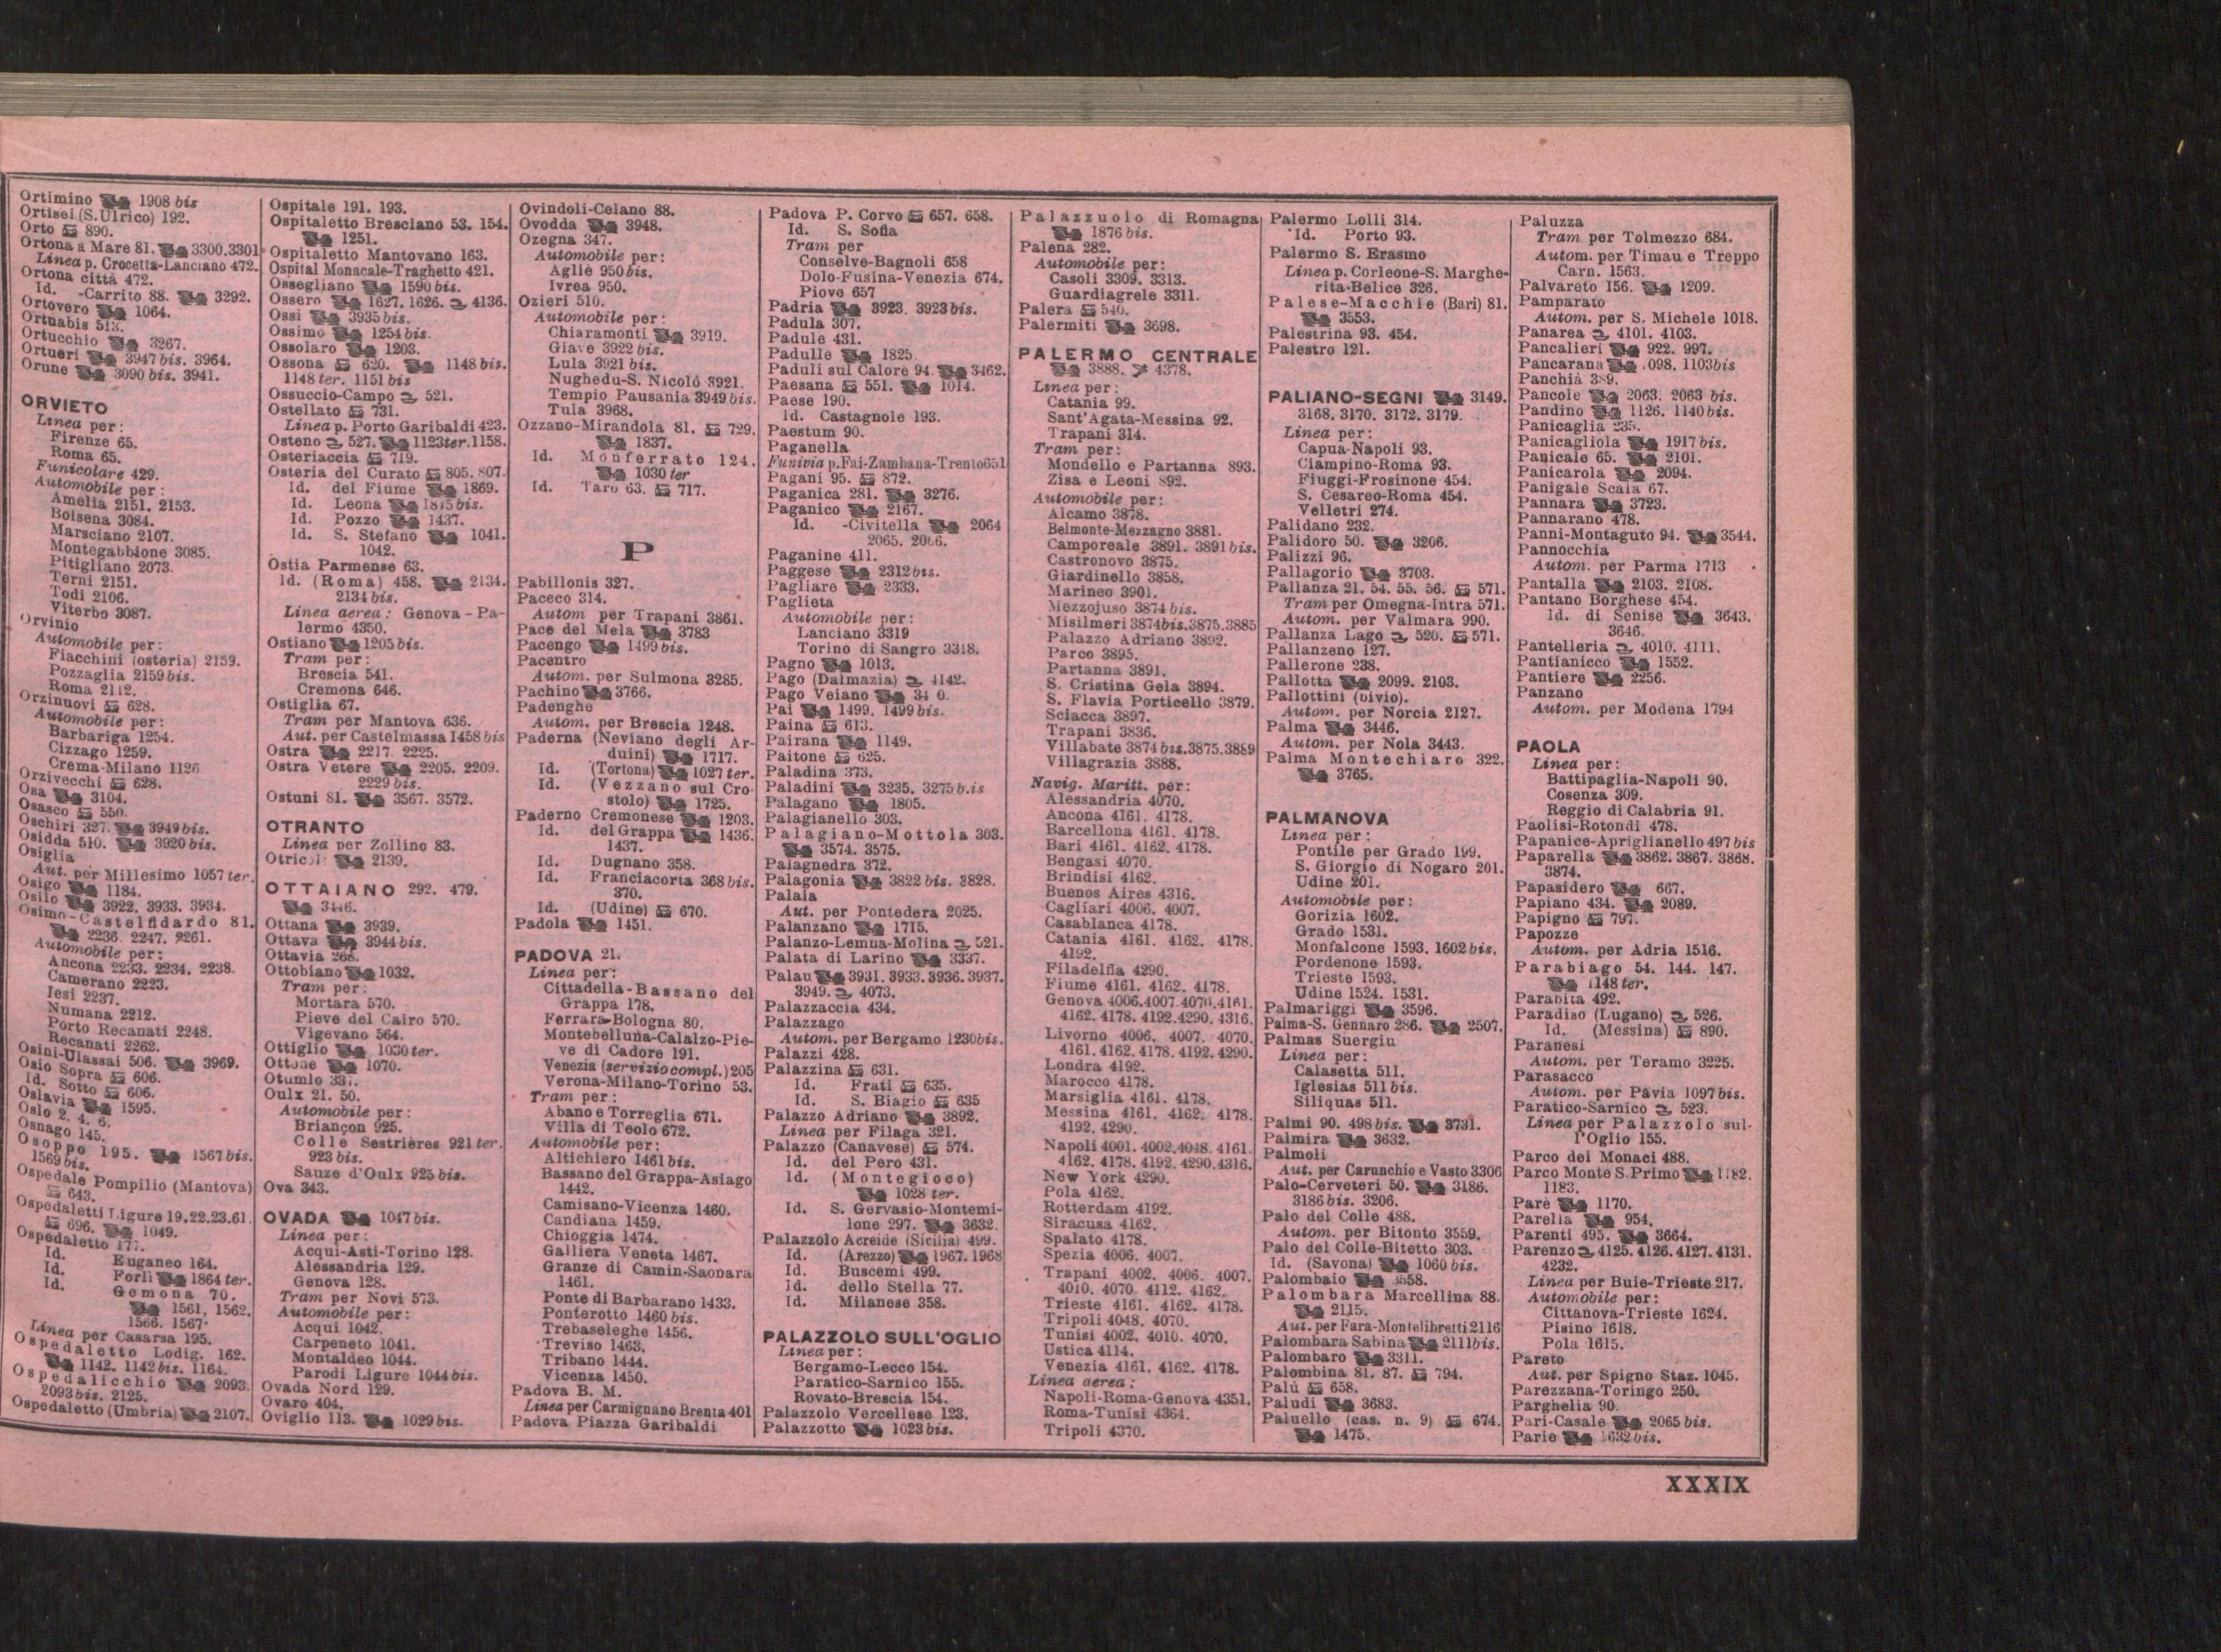 Ortimino 1908 bis
Ortisei (S. Ulrico) 192.
Orto 890.
Ortona a Mare 81. 3300.3301
Linea p. Crocetta-Lanciano 472.
Ortona città 472.
Id. -Carrito 88. 3292.
Ortovero 1064.
Ortuabis 513.
Ortucchio 3267.
Ortueri 3947 bis. 3964.
Orune 3090 bis. 3941.
ORVIETO
Linea per:
Firenze 65.
Roma 65.
Funicolare 429.
Automobile per:
Amelia 2151. 2153.
Bolsena 3084.
Marsciano 2107.
Montegabbione 3085.
Pitigliano 2073.
Terni 2151.
Todi 2106.
Viterbo 3087.
Orvinio
Automobile per:
Fiacchini (osteria) 2159.
Pozzaglia 2159 bis.
Roma 2112.
Orzinuovi 628.
Automobile per:
Barbariga 1254.
Cizzago 1259.
Crema-Milano 1126
Orzivecchi 628.
Osa 3104.
Osasco 550.
Oschiri 327. 3949 bis.
Osidda 510. 3920 bis.
Osiglia
Aut. per Millesimo 1057 ter.
Osigo 1184.
Osilo 3922. 3933. 3934.
Osimo-Castelfidardo 81.
2236. 2247. 2261.
Automobile per:
Ancona 2233. 2234. 2238.
Camerano 2223.
Iesi 2237.
Numana 2212.
Porto Recanati 2248.
Recanati 2262.
Osini-Ulassai 506. 3969.
Osio Sopra 606.
Id. Sotto 606.
Oslavia 1595.
Oslo 2. 4. 6.
Osnago 145.
Osoppo 195. 1567 bis.
1569 bis.
Ospedale Pompilio (Mantova)
643.
Ospedaletti Ligure 19.22.23.61.
696. 1049.
Ospedaletto 177.
Id. Euganeo 164.
Id. Forlì 1864 ter.
Id. Gemona 70.
1561, 1562.
1566. 1567.
Linea per Casarsa 195.
Ospedaletto Lodig. 162.
1142. 1142 bis. 1164.
Ospedalicchio 2093.
2093 bis. 2125.
Ospedaletto (Umbria) 2107.
Ospitale 191. 193.
Ospitaletto Bresciano 53. 154.
1251.
Ospitaletto Mantovano 163.
Ospital Monacale-Traghetto 421.
Ossegliano 1590 bis.
Ossero 1627. 1626. 4136.
Ossi 3935 bis.
Ossimo 1254 bis.
Ossolaro 1203.
Ossona 620. 1148 bis.
1148 ter. 1151 bis
Ossuccio-Campo 521.
Ostellato 731.
Linea p. Porto Garibaldi 423.
Osteno 527. 1123 ter. 1158.
Osteriaccia 719.
Osteria del Curato 805. 807.
Id. del Fiume 1869.
Id. Leona 1815 bis.
Id. Pozzo 1437.
Id. S. Stefano 1041.
1042.
Ostia Parmense 63.
Id. (Roma) 458. 2134.
2134 bis.
Linea aerea: Genova-Pa-
lermo 4350.
Ostiano 1205 bis.
Tram per:
Brescia 541.
Cremona 646.
Ostiglia 67.
Tram per Mantova 636.
Aut. per Castelmassa 1458 bis
Ostra 2217. 2225.
Ostra Vetere 2205. 2209.
2229 bis.
Ostuni 81. 3567. 3572.
OTRANTO
Linea per Zollino 83.
Otricoli 2139.
OTTAIANO 292. 479.
3446.
Ottana 3939.
Ottava 3944 bis.
Ottavia 268.
Ottobiano 1032.
Tram per:
Mortara 570.
Pieve del Cairo 570.
Vigevano 564.
Ottiglio 1030 ter.
Ottone 1070.
Otumlo 337.
Oulx 21. 50.
Automobile per:
Briançon 925.
Colle Sestrières 921 ter.
923 bis.
Sauze d'Oulx 925 bis.
Ova 343.
OVADA 1047 bis.
Linea per:
Acqui-Asti-Torino 128.
Alessandria 129.
Genova 128.
Tram per Novi 573.
Automobile per:
Acqui 1042.
Carpeneto 1041.
Montaldeo 1044.
Parodi Ligure 1044 bis.
Ovada Nord 129.
Ovaro 404.
Oviglio 113. 1029 bis.
Ovindoli-Celano 88.
Ovodda 3948.
Ozegna 347.
Automobile per:
Agliè 950 bis.
Ivrea 950.
Ozieri 510.
Automobile per:
Chiaramonti 3919.
Giave 3922 bis.
Lula 3921 bis.
Nughedu-S. Nicolò 3921.
Tempio Pausania 3949 bis.
Tula 3968.
Ozzano-Mirandola 81. 729.
1837.
Id. Monferrato 124.
1030 ter
Id. Taro 63. 717.
P
Pabillonis 327.
Paceco 314.
Autom per Trapani 3861.
Pace del Mela 3783
Pacengo 1499 bis.
Pacentro
Autom. per Sulmona 3285.
Pachino 3766.
Padenghe
Autom. per Brescia 1248.
Paderna (Neviano degli Ar-
duini) 1717.
Id. (Tortona) 1027 ter.
Id. (Vezzano sul Cro-
stolo) 1725.
Paderno Cremonese 1203.
Id. del Grappa 1436.
1437.
Id. Dugnano 358.
Id. Franciacorta 368 bis.
370.
Id. (Udine) 670.
Padola 1451.
PADOVA 21.
Linea per:
Cittadella-Bassano del
Grappa 178.
Ferrara-Bologna 80.
Montebelluna-Calalzo-Pie-
ve di Cadore 191.
Venezia (servizio compl.) 205
Verona-Milano-Torino 53.
Tram per:
Abano e Torreglia 671.
Villa di Teolo 672.
Automobile per:
Altichiero 1461 bis.
Bassano del Grappa-Asiago
1442.
Camisano-Vicenza 1460.
Candiana 1459.
Chioggia 1474.
Galliera Veneta 1467.
Granze di Camin-Saonara
1461.
Ponte di Barbarano 1433.
Ponterotto 1460 bis.
Trebaseleghe 1456.
Treviso 1463.
Tribano 1444.
Vicenza 1450.
Padova B. M.
Linea per Carmignano Brenta 401
Padova Piazza Garibaldi
Padova P. Corvo 657. 658.
Id. S. Sofia
Tram per
Conselve-Bagnoli 658
Dolo-Fusina-Venezia 674.
Piove 657
Padria 3923. 3923 bis.
Padula 307.
Padule 431.
Padulle 1825
Paduli sul Calore 94. 3462.
Paesana 551. 1014.
Paese 190.
Id. Castagnole 193.
Paestum 90.
Paganella
Funivia p. Fai-Zambana-Trento 651
Pagani 95. 872.
Paganica 281. 3276.
Paganico 2167.
Id. -Civitella 2064
2065. 2066.
Paganine 411.
Paggese 2312 bis.
Pagliare 2333.
Paglieta
Automobile per:
Lanciano 3319
Torino di Sangro 3318.
Pagno 1013.
Pago (Dalmazia) 4142.
Pago Veiano
Pai 1499. 1499 bis.
Paina 613.
Pairana 1149.
Paitone 625.
Paladina 373.
Paladini 3235. 3275 b.is
Palagano 1805.
Palagianello 303.
Palagiano-Mottola 303.
3574. 3575.
Palagnedra 372.
Palagonia 3822 bis. 3828.
Palaia
Aut. per Pontedera 2025.
Palanzano 1715.
Palanzo-Lemna-Molina 521.
Palata di Larino 3337.
Palau 3931. 3933. 3936. 3937.
3949. 4073.
Palazzaccia 434.
Palazzago
Autom. per Bergamo 1230 bis.
Palazzi 428.
Palazzina 631.
Id. Frati 635.
Id. S. Biagio 635
Palazzo Adriano 3892.
Linea per Filaga 321.
Palazzo (Canavese) 574.
Id. del Pero 431.
Id. (Montegioco)
1028 ter.
Id. S. Gervasio-Montemi-
lone 297. 3632.
Palazzolo Acreide (Sicilia) 499.
Id. (Arezzo) 1967. 1968
Id. Buscemi 499.
Id. dello Stella 77.
Id. Milanese 358.
PALAZZOLO SULL'OGLIO
Linea per:
Bergamo-Lecco 154.
Paratico-Sarnico 155.
Rovato-Brescia 154.
Palazzolo Vercellese 123.
Palazzotto 1023 bis.
Palazzuolo di Romagna
1876 bis.
Palena 282.
Automobile per:
Casoli 3309. 3313.
Guardiagrele 3311.
Palera 540.
Palermiti 3698.
PALERMO CENTRALE
3888. 4378.
Linea per:
Catania 99.
Sant'Agata-Messina 92.
Trapani 314.
Tram per:
Mondello e Partanna 893.
Zisa e Leoni 892.
Automobile per:
Alcamo 3878.
Belmonte-Mezzagno 3881.
Camporeale 3891. 3891 bis.
Castronovo 3875.
Giardinello 3858.
Marineo 3901.
Mezzojuso 3874 bis.
Misilmeri 3874 bis. 3875. 3885
Palazzo Adriano 3892.
Parco 3895.
Partanna 3891.
S. Cristina Gela 3894.
S. Flavia Porticello 3879.
Sciacca 3897.
Trapani 3836.
Villabate 3874 bis. 3875. 3889
Villagrazia 3888.
Navig. Maritt. per:
Alessandria 4070.
Ancona 4161. 4178.
Barcellona 4161. 4178.
Bari 4161. 4162. 4178.
Bengasi 4070.
Brindisi 4162.
Buenos Aires 4316.
Cagliari 4006. 4007.
Casablanca 4178.
Catania 4161. 4162. 4178.
4192.
Filadelfia 4290.
Fiume 4161. 4162. 4178.
Genova 4006. 4007. 4070. 4161.
4162. 4178. 4192. 4290. 4316.
Livorno 4006. 4007. 4070.
4161. 4162. 4178. 4192. 4290.
Londra 4192.
Marocco 4178.
Marsiglia 4161. 4178.
Messina 4161. 4162. 4178.
4192. 4290.
Napoli 4001. 4002. 4048. 4161.
4162. 4178. 4192. 4290. 4316.
New York 4290.
Pola 4162.
Rotterdam 4192.
Siracusa 4162.
Spalato 4178.
Spezia 4006. 4007.
Trapani 4002. 4006. 4007.
4010. 4070. 4112. 4162.
Trieste 4161. 4162. 4178.
Tripoli 4048. 4070.
Tunisi 4002. 4010. 4070.
Ustica 4114.
Venezia 4161. 4162. 4178.
Linea aerea:
Napoli-Roma-Genova 4351.
Roma-Tunisi 4364.
Tripoli 4370.
Palermo Lolli 314.
Id. Porto 93.
Palermo S. Erasmo
Linea p. Corleone-S. Marghe-
rita-Belice 326.
Palese-Macchie (Bari) 81.
3553.
Palestrina 93. 454.
Palestro 121.
PALIANO-SEGNI 3149.
3168. 3170. 3172. 3179.
Linea per:
Capua-Napoli 93.
Ciampino-Roma 93.
Fiuggi-Frosinone 454.
S. Cesareo-Roma 454.
Velletri 274.
Palidano 232.
Palidoro 50. 3206.
Palizzi 96.
Pallagorio 3703.
Pallanza 21. 54. 55. 56. 571.
Tram per Omegna-Intra 571.
Autom. per Valmara 990.
Pallanza Lago 520. 571.
Pallanzeno 127.
Pallerone 238.
Pallotta 2099. 2103.
Pallottini (bivio).
Autom. per Norcia 2127.
Palma 3446.
Autom. per Nola 3443.
Palma Montechiaro 322.
3765.
PALMANOVA
Linea per:
Pontile per Grado 199.
S. Giorgio di Nogaro 201.
Udine 201.
Automobile per:
Gorizia 1602.
Grado 1531.
Monfalcone 1593. 1602 bis.
Pordenone 1593.
Trieste 1593.
Udine 1524. 1531.
Palmariggi 3596.
Palma-S. Gennaro 286. 2507.
Palmas Suergiu
Linea per:
Calasetta 511.
Iglesias 511 bis.
Siliquas 511.
Palmi 90. 498 bis. 3731.
Palmira 3632.
Palmoli
Aut. per Carunchio e Vasto 3306
Palo-Cerveteri 50. 3186.
3186 bis. 3206.
Palo del Colle 488.
Autom. per Bitonto 3559.
Palo del Colle-Bitetto 303.
Id. (Savona) 1060 bis.
Palombaio 3558.
Palombara Marcellina 88.
2115.
Aut. per Fara-Montelibretti 2116
Palombara Sabina 2111 bis.
Palombaro 3311.
Palombina 81. 87. 794.
Palù 658.
Paludi 3683.
Paluello (cas. n. 9) 674.
1475.
Paluzza
Tram per Tolmezzo 684.
Autom. per Timau e Treppo
Carn. 1563.
Palvareto 156. 1209.
Pamparato
Autom. per S. Michele 1018.
Panarea 4101. 4103.
Pancalieri 922. 997.
Pancarana 1098. 1103 bis
Panchià 389.
Pancole 2063. 2063 bis.
Pandino 1126. 1140 bis.
Panicaglia 235.
Panicagliola 1917 bis.
Panicale 65. 2101.
Panicarola 2094.
Panigale Scala 67.
Pannara 3723.
Pannarano 478.
Panni-Montaguto 94. 3544.
Pannocchia
Autom. per Parma 1713
Pantalla 2103. 2108.
Pantano Borghese 454.
Id. di Senise 3643.
3646.
Pantelleria 4010. 4111.
Pantianicco 1552.
Pantiere 2256.
Panzano
Autom. per Modena 1794
PAOLA
Linea per:
Battipaglia-Napoli 90.
Cosenza 309.
Reggio di Calabria 91.
Paolisi-Rotondi 478.
Papanice-Apriglianello 497 bis
Paparella 3862. 3867. 3868.
3874.
Papasidero 667.
Papiano 434. 2089.
Papigno 797.
Papozze
Autom. per Adria 1516.
Parabiago 54. 144. 147.
1148 ter.
Parabita 492.
Paradiso (Lugano) 526.
Id. (Messina) 890.
Paranesi
Autom. per Teramo 3225.
Parasacco
Autom. per Pavia 1097 bis.
Paratico-Sarnico 523.
Linea per Palazzolo sul-
l'Oglio 155.
Parco dei Monaci 488.
Parco Monte S. Primo 1182.
1183.
Parè 1170.
Parella 954.
Parenti 495. 3664.
Parenzo 4125. 4126. 4127. 4131.
4232.
Linea per Buie-Trieste 217.
Automobile per:
Cittanova-Trieste 1624.
Pisino 1618.
Pola 1615.
Pareto
Aut. per Spigno Staz. 1045.
Parezzana-Toringo 250.
Parghelia 90.
Pari-Casale 2065 bis.
Parie 1632 bis.
XXXIX